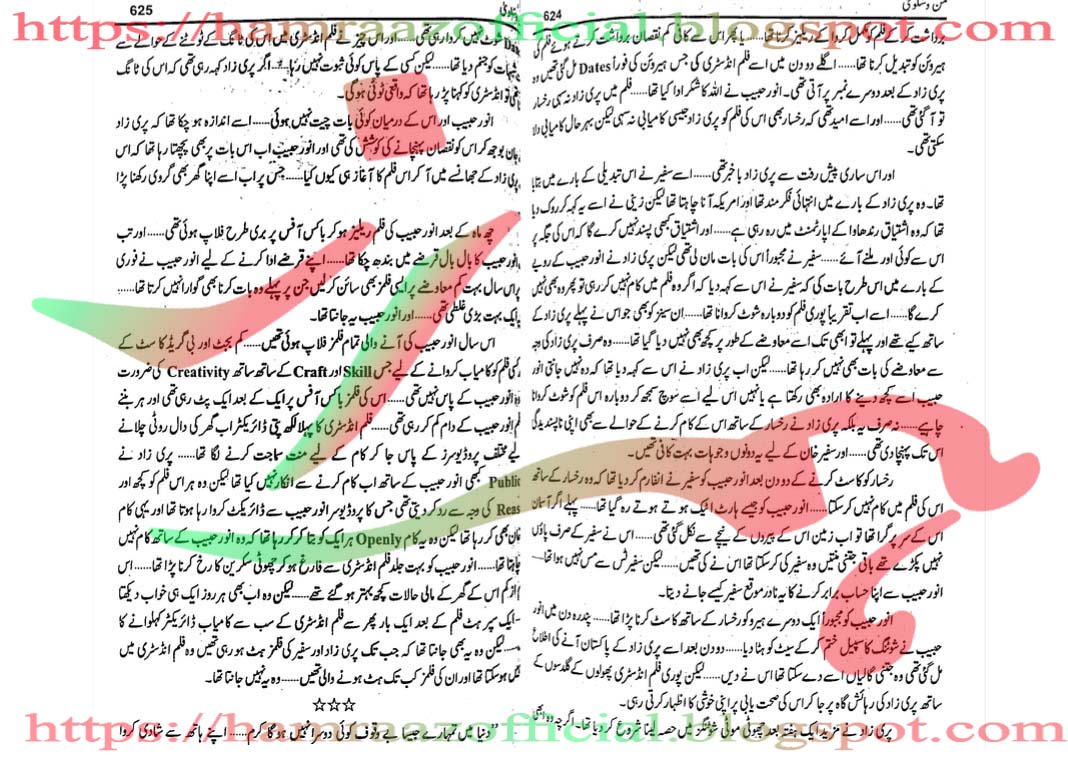 https://hamraazofficial.blogspot.com
624
برداشت کرکے فلم کو مکمل کروا کے ریلیز کرنا تھا...... یا پھر اس سے کافی کم نقصان برداشت کرتے ہوئے فلم کی
ہیروئن کو تبدیل کرنا تھا...... اگلے دو دن میں اسے فلم انڈسٹری کی جس ہیروئن کی فوراً Dates مل گئی تھیں وہ
پری زاد کے بعد دوسرے نمبر پر آتی تھی۔ انور حبیب نے اللہ کا شکر ادا کیا تھا...... فلم میں پری زاد نہ سہی رخسار
تو آ گئی تھی...... اور اسے امید تھی کہ رخسار بھی اس کی فلم کو پری زاد جیسی کامیابی نہ سہی لیکن بہرحال کامیابی دلا
سکتی تھی۔
اور اس ساری پیش رفت سے پری زاد باخبر تھی...... اسے سفیر نے اس تبدیلی کے بارے میں بتایا
تھا۔ وہ پری زاد کے بارے میں انتہائی فکر مند تھا اور امریکہ آنا چاہتا تھا لیکن زینی نے اسے یہ کہہ کر روک دیا
تھا کہ وہ اشتیاق رندھاوا کے اپارٹمنٹ میں رہ رہی ہے...... اور اشتیاق کبھی پسند نہیں کرے گا کہ اس کی جگہ پر
اس سے کوئی اور ملنے آئے...... سفیر نے مجبوراً اس کی بات مان لی تھی لیکن پری زاد نے انور حبیب کے رویے
کے بارے میں اس طرح بات کی کہ سفیر نے اس سے کہہ دیا کہ اگر وہ فلم میں کام نہیں کر رہی تو پھر وہ بھی نہیں
کرے گا...... اسے اب تقریباً پوری فلم کو دوبارہ شوٹ کروانا تھا...... ان سینز کو بھی جو اس نے پہلے پری زاد کے
ساتھ کیے تھے اور پہلے تو ابھی تک اسے معاوضے کے طور پر کچھ بھی نہیں دیا گیا تھا...... وہ صرف پری زاد کی وجہ
سے معاوضے کی بات بھی نہیں کر رہا تھا...... لیکن اب پری زاد نے اس سے کہہ دیا تھا کہ وہ نہیں جانتی انور
حبیب اسے کچھ دینے کا ارادہ بھی رکھتا ہے یا نہیں اس لیے اسے سوچ سمجھ کر دوبارہ اس فلم کو شوٹ کروانا
چاہیے...... نہ صرف یہ بلکہ پری زاد نے رخسار کے ساتھ اس کے کام کرنے کے حوالے سے بھی اپنی ناپسندیدگی
اس تک پہنچا دی تھی...... اور سفیر خان کے لیے یہ دونوں وجوہات بہت کافی تھیں۔
رخسار کو کاسٹ کرنے کے دو دن بعد انور حبیب کو سفیر نے انفارم کر دیا تھا کہ وہ رخسار کے ساتھ
اس کی فلم میں کام نہیں کر سکتا...... انور حبیب کو جیسے ہارٹ اٹیک ہوتے ہوتے رہ گیا تھا...... پہلے اگر آسمان
اس کے سر پر گرا تھا تو اب زمین اس کے پیروں کے نیچے سے نکل گئی تھی...... اس نے سفیر کے صرف پاؤں
نہیں پکڑے تھے باقی جتنی منتیں وہ سفیر کی کر سکتا تھا اس نے کی تھیں...... لیکن سفیر ٹس سے مس نہیں ہوا تھا......
انور حبیب سے اپنا حساب برابر کرنے کا یہ نادر موقع سفیر کیسے جانے دیتا۔
انور حبیب کو مجبوراً ایک دوسرے ہیرو کو رخسار کے ساتھ کاسٹ کرنا پڑا تھا...... پندرہ دن میں انور
حبیب نے شوٹنگ کا سپیل ختم کر کے سیٹ کو ہٹا دیا...... دو دن بعد اسے پری زاد کے پاکستان آنے کی اطلاع
مل گئی تھی وہ جتنی گالیاں اسے دے سکتا تھا اس نے دیں...... لیکن پوری فلم انڈسٹری پھولوں کے گلدستوں کے
ساتھ پری زاد کی رہائش گاہ پر جا کر اس کی صحت یابی پر اپنی خوشی کا اظہار کرتی رہی۔
پری زاد نے مزید ایک ہفتہ بعد چھوٹی موٹی شوٹنگز میں حصہ لینا شروع کر دیا تھا۔ اگرچہ وہ ابھی
625
شوٹ نہیں کروا رہی تھی...... اور اس چیز نے فلم انڈسٹری میں اس کی ٹانگ کے ٹوٹنے کے حوالے سے
شبہات کو جنم دیا تھا...... لیکن کسی کے پاس کوئی ثبوت نہیں رہا...... اگر پری زاد کہہ رہی تھی کہ اس کی ٹانگ
تو انڈسٹری کو کہنا پڑ رہا تھا کہ واقعی ٹوٹی ہوگی۔
انور حبیب اور اس کے درمیان کوئی بات چیت نہیں ہوئی...... اسے اندازہ ہو چکا تھا کہ پری زاد
جان بوجھ کر اس کو نقصان پہنچانے کی کوشش کی تھی اور انور حبیب اب اس بات پر بھی پچھتا رہا تھا کہ اس
پری زاد کے جھانسے میں آ کر اس فلم کا آغاز ہی کیوں کیا...... جس پر اب اسے اپنا گھر بھی گروی رکھنا پڑا
چھ ماہ کے بعد انور حبیب کی فلم ریلیز ہو کر باکس آفس پر بری طرح فلاپ ہوئی تھی...... اور تب
انور حبیب کا بال بال قرضے میں بندھ چکا تھا...... اپنے قرضے ادا کرنے کے لیے انور حبیب نے فوری
اس سال بہت کم معاوضے پر ایسی فلمز بھی سائن کر لیں جن پر پہلے وہ بات کرنا بھی گوارا نہیں کرتا تھا......
ایک بہت بڑی غلطی تھی...... اور انور حبیب یہ جانتا تھا۔
اس سال انور حبیب کی آنے والی تمام فلمز فلاپ ہوئی تھیں...... کم بجٹ اور بی گریڈ کاسٹ کے
فلم کو کامیاب کروانے کے لیے جس Skill اور Craft کے ساتھ ساتھ Creativity کی ضرورت
وہ انور حبیب کے پاس نہیں تھی...... اس کی فلمز باکس آفس پر ایک کے بعد ایک پٹ رہی تھی اور ہر پٹنے
انور حبیب کے دام کم کر رہی تھی...... فلم انڈسٹری کا پہلا لکھ پتی ڈائریکٹر اب گھر کی دال روٹی چلانے
لیے مختلف پروڈیوسرز کے پاس جا کر کام کے لیے منت سماجت کرنے لگا تھا...... پری زاد نے
Public کبھی انور حبیب کے ساتھ اب کام کرنے سے انکار نہیں کیا تھا لیکن وہ ہر اس فلم کو کچھ اور
Reas کی وجہ سے رد کر دیتی تھی جس کا پروڈیوسر انور حبیب سے ڈائریکٹ کروا رہا ہوتا تھا اور یہی کام
خان بھی کر رہا تھا لیکن وہ یہ کام Openly ہر ایک کو بتا کر کر رہا تھا کہ وہ انور حبیب کے ساتھ کام نہیں
چاہتا...... انور حبیب کو بہت جلد فلم انڈسٹری سے فارغ ہو کر چھوٹی سکرین کا رخ کرنا پڑا تھا...... اس
از کم اس کے گھر کے مالی حالات کچھ بہتر ہو گئے تھے...... لیکن وہ اب بھی ہر روز ایک ہی خواب دیکھتا
ایک سپر ہٹ فلم کے بعد ایک بار پھر سے فلم انڈسٹری کے سب سے کامیاب ڈائریکٹر کہلوانے کا
لیکن وہ یہ بھی جانتا تھا کہ جب تک پری زاد اور سفیر کی فلمز ہٹ ہو رہی تھیں وہ فلم انڈسٹری میں
ہو سکتا تھا اور ان کی فلمز کب تک ہٹ ہونے والی تھیں...... وہ یہ نہیں جانتا تھا۔
☆☆☆
"دنیا میں تمہارے جیسا بے وقوف کوئی دوسرا نہیں ہوگا کرم...... اپنے ہاتھ سے شادی کروا
https://hamraazofficial.blogspot.com